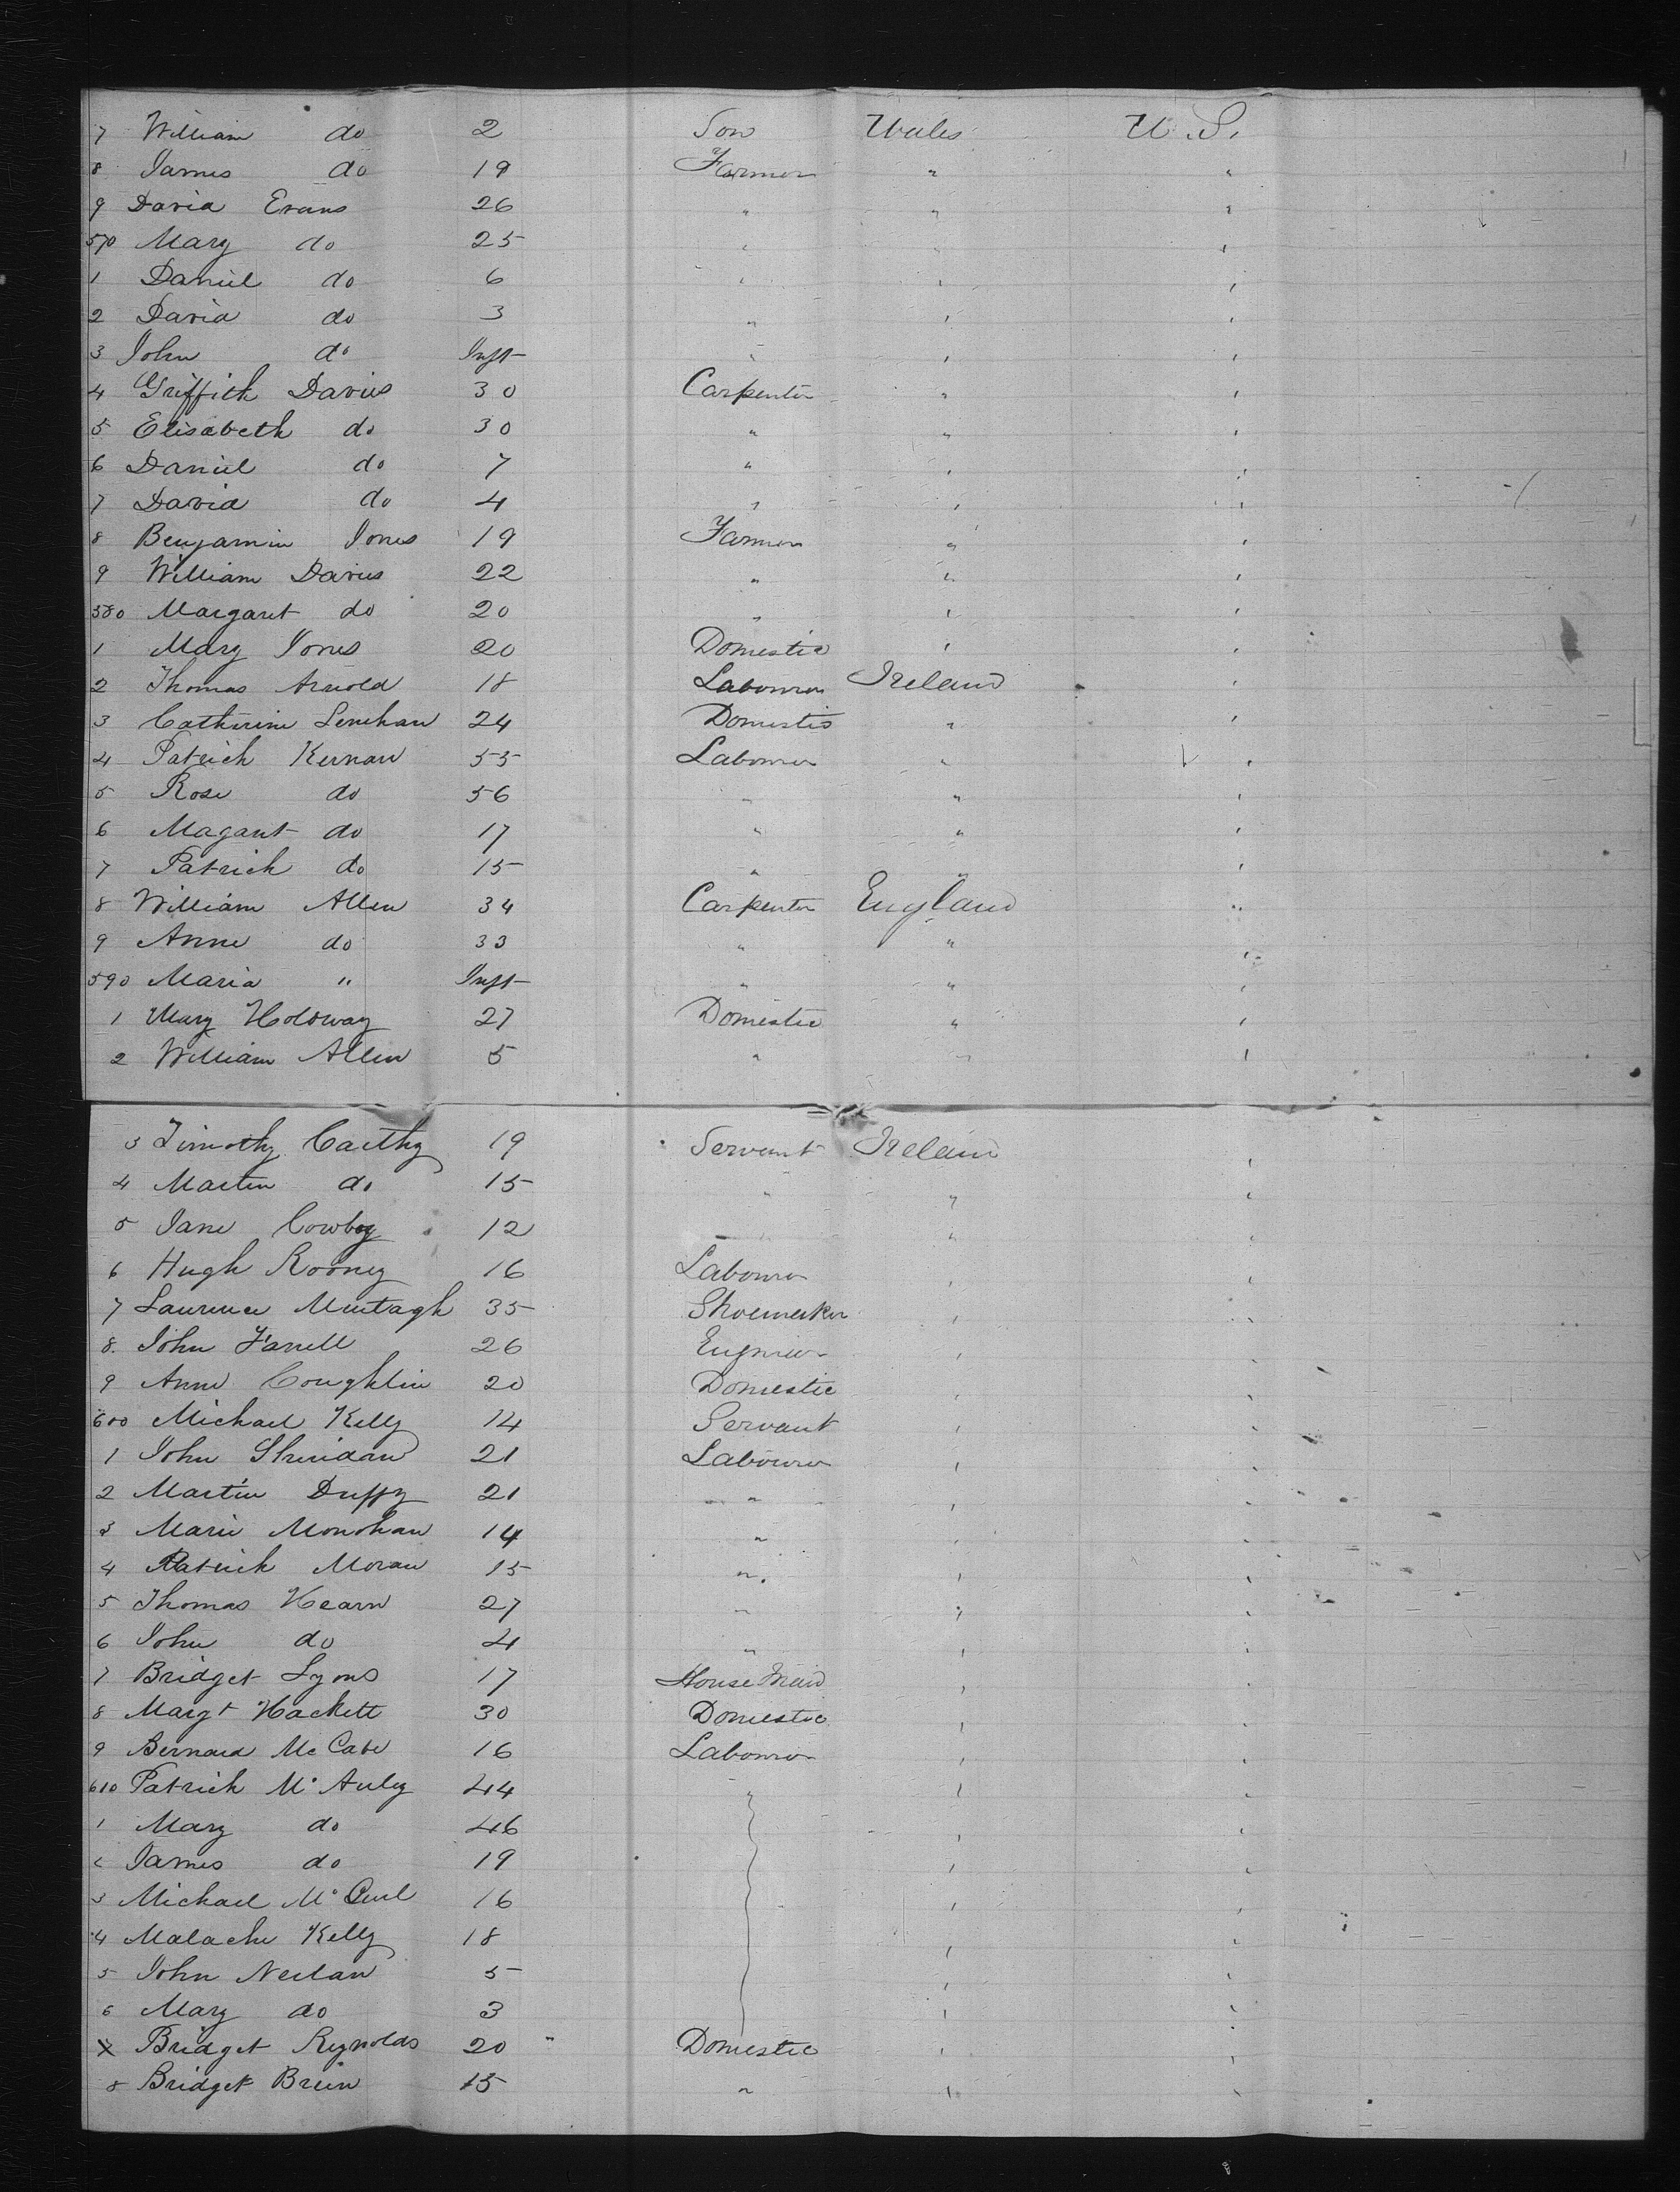 7 William do 2 Son Wales U. S.
8 James do 19 Farmer " "
9 David Evans 26 " " "
570 Mary do 25 " " "
1 Daniel do 6 " " "
2 David do 3 " " "
3 John do Inft " " "
4 Griffith Davies 30 Carpenter " "
5 Elisabeth do 30 " " "
6 Daniel do 7 " " "
7 David do 4 " " "
8 Benjamin Jones 19 Farmer " "
9 William Davies 22 " " "
580 Margaret do 20 " " "
1 Mary Jones 20 Domestic " "
2 Thomas Arnold 18 Labourer Ireland "
3 Catherine Lenehan 24 Domestic " "
4 Patrick Kernan 55 Labourer " "
5 Rose do 56 " " "
6 Magaret do 17 " " "
7 Patrick do 15 " " "
8 William Allen 34 Carpenter England "
9 Anne do 33 " " "
590 Maria " Inft " " "
1 Mary Holdway 27 Domestic " "
2 William Allen 5 " " "
3 Timothy Carthy 19 Servant Ireland "
4 Martin do 15 " " "
5 Jane Cowboy 12 " " "
6 Hugh Rooney 16 Labourer " "
7 Laurence Murtagh 35 Shoemaker " "
8. John Farrell 26 Engineer " "
9 Anne Coughlin 20 Domestic " "
600 Michael Kelly 14 Servant " "
1 John Sheridan 21 Labourer " "
2 Martin Duffy 21 " " "
3 Marie Monohan 14 " " "
4 Patrick Moran 15 " " "
5 Thomas Hearn 27 " " "
6 John do 4 " " "
7 Bridget Lyons 17 House Maid " "
8 Margt Hackett 30 Domestic " "
9 Bernard McCabe 16 Labourer " "
610 Patrick McAuley 44 " " "
1 Mary do 46 " "
2 James do 19 " "
3 Michael Mc 16 " "
4 Malache Kelly 18 " "
5 John Neilan 5 " "
6 Mary do 3 " "
X Bridget Reynolds 20 " Domestic " "
8 Bridget Brien 15 " " "